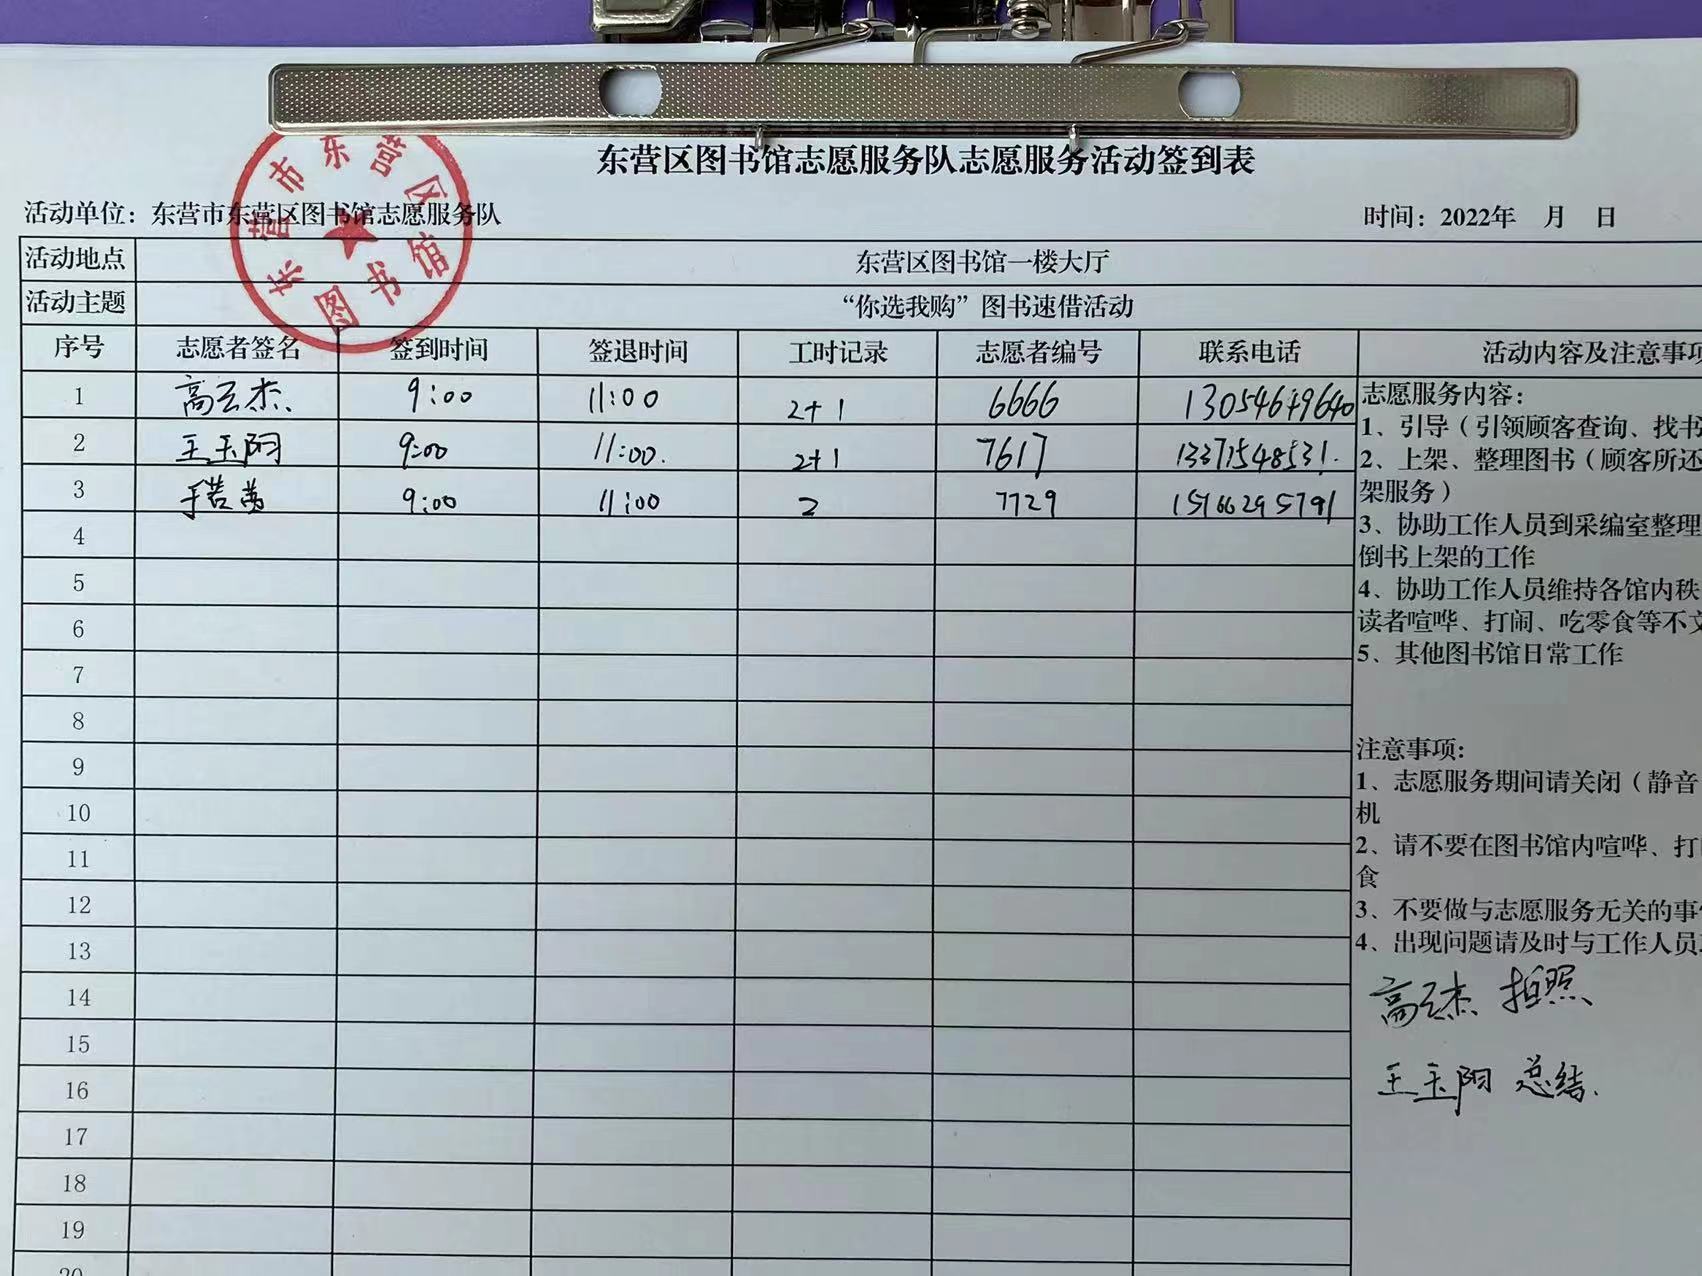 东营区图书馆志愿服务队志愿服务活动签到表
东营市东营区图书馆
活动单位：东营市东营区图书馆志愿服务队 时间：2022年 月 日
活动地点 东营区图书馆一楼大厅
活动主题 “你选我购”图书速借活动
序号 志愿者签名 签到时间 签退时间 工时记录 志愿者编号 联系电话 活动内容及注意事项
1 高云杰 9:00 11:00 2+1 6666 13054649640
2 王玉阳 9:00 11:00. 2+1 7617 13371548531.
3 9:00 11:00 2 7729 15166295791
4
5
6
7
8
9
10
11
12
13
14
15
16
17
18
19
20
志愿服务内容：
1、引导（引领顾客查询、找书
2、上架、整理图书（顾客所还
架服务）
3、协助工作人员到采编室整理
倒书上架的工作
4、协助工作人员维持各馆内秩
读者喧哗、打闹、吃零食等不文
5、其他图书馆日常工作
注意事项：
1、志愿服务期间请关闭（静音
机
2、请不要在图书馆内喧哗、打
食
3、不要做与志愿服务无关的事
4、出现问题请及时与工作人员
高云杰 拍照
王玉阳 总结.